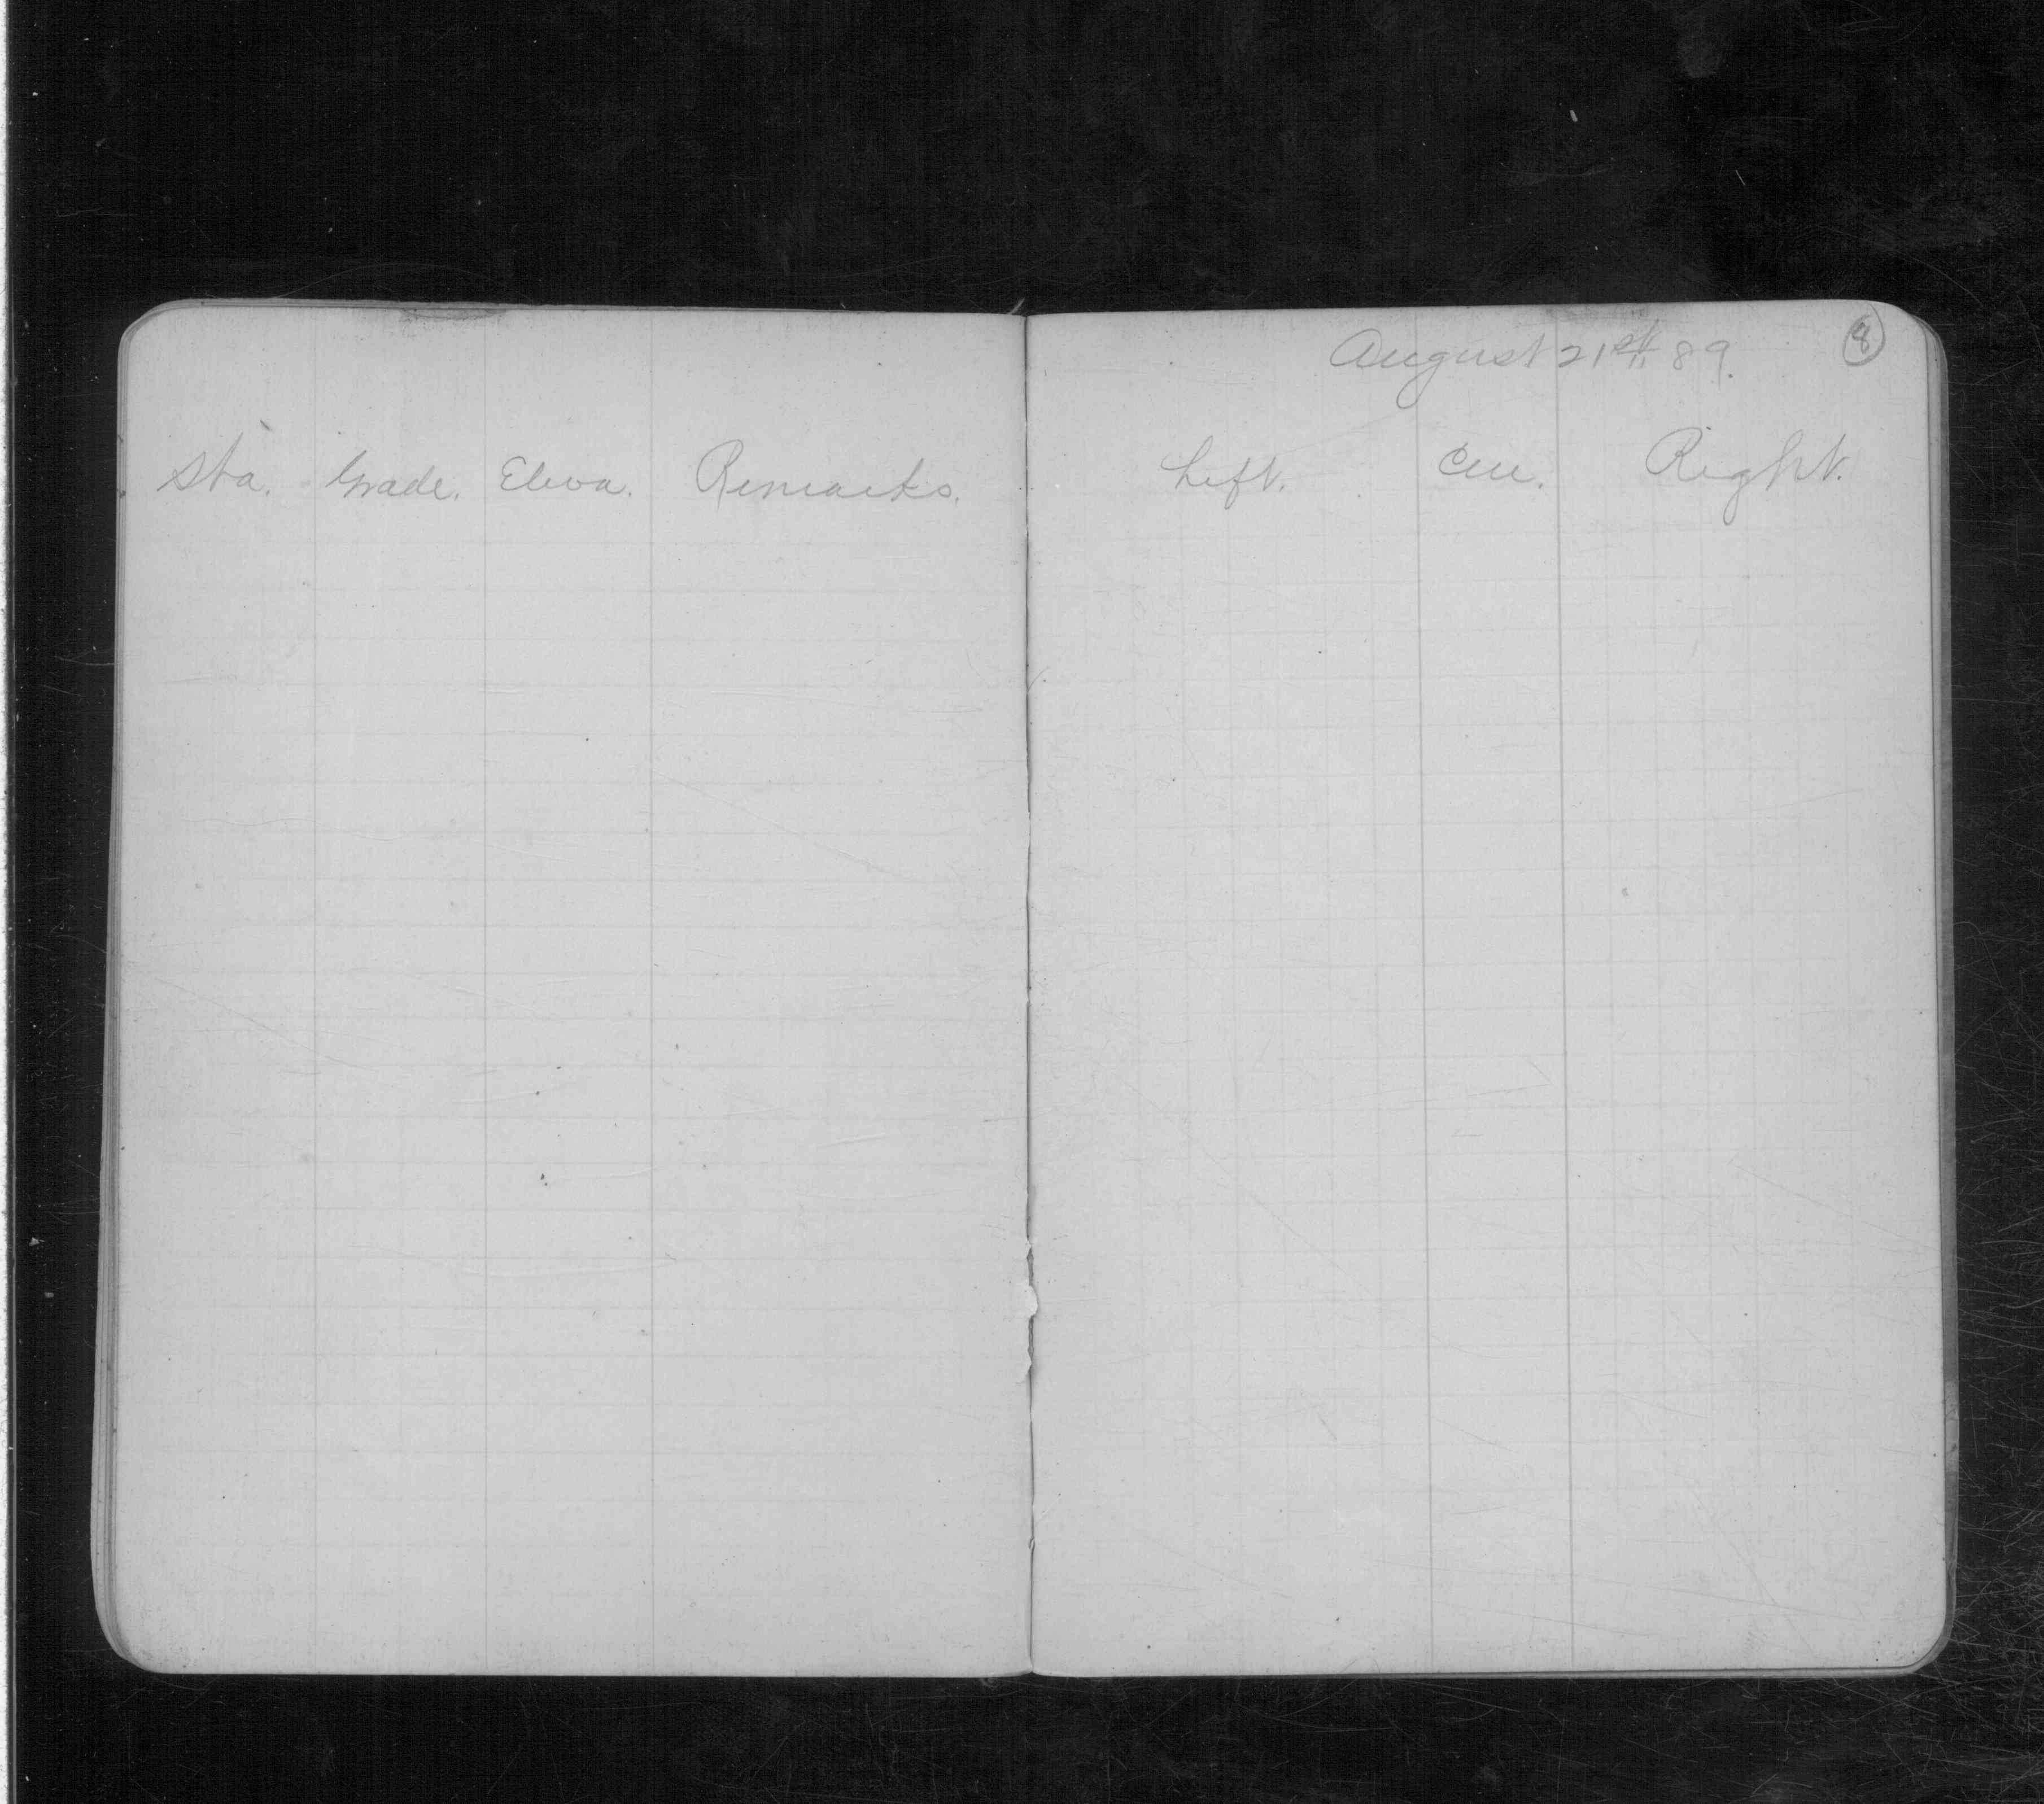 August 21st 89.
8
Sta. Grade. Eleva. Remarks.
Left. Cen. Right.